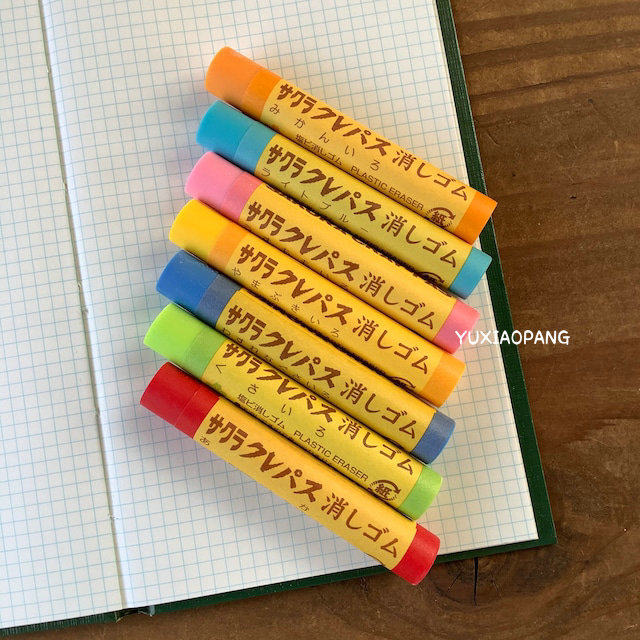 サクラクレパス 消しゴム
みかんいろ
塩ビ消しゴム PLASTIC ERASER
紙
サクラクレパス 消しゴム
ライトブルー
サクラクレパス 消しゴム
サクラクレパス 消しゴム
やまぶきいろ
サクラクレパス 消しゴム
サクラクレパス 消しゴム
くさいろ
塩ビ消しゴム PLASTIC ERASER
紙
サクラクレパス 消しゴム
あか
YUXIAOPANG